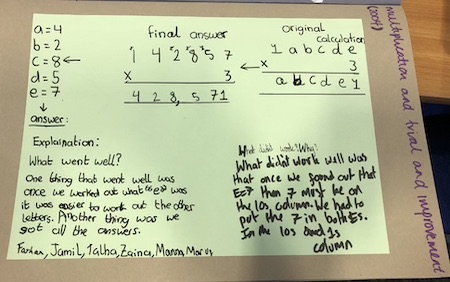 a=4
b=2
c=8←
d=5
e=7
↓
answer:
final answer
1 4 2 8 5 7
x 3
4 2 8, 5 7 1
original
calculation
1 a b c d e
x 3
a b c d e 1
Explaination:
What went well?
One thing that went well was
once we worked out what "e" was
it was easier to work out the other
letters. Another thing was we
got all the answers.
Farhan, Jamil, Talha, Zaina,
What didn't work? Why?
What didn't work well was
that once we found out that
E=7 then 7 must be on
the 10s column. We had to
put the 7 in both Es.
In the 10s and 1s
column
Multiplication and trial and improvement
(2004)